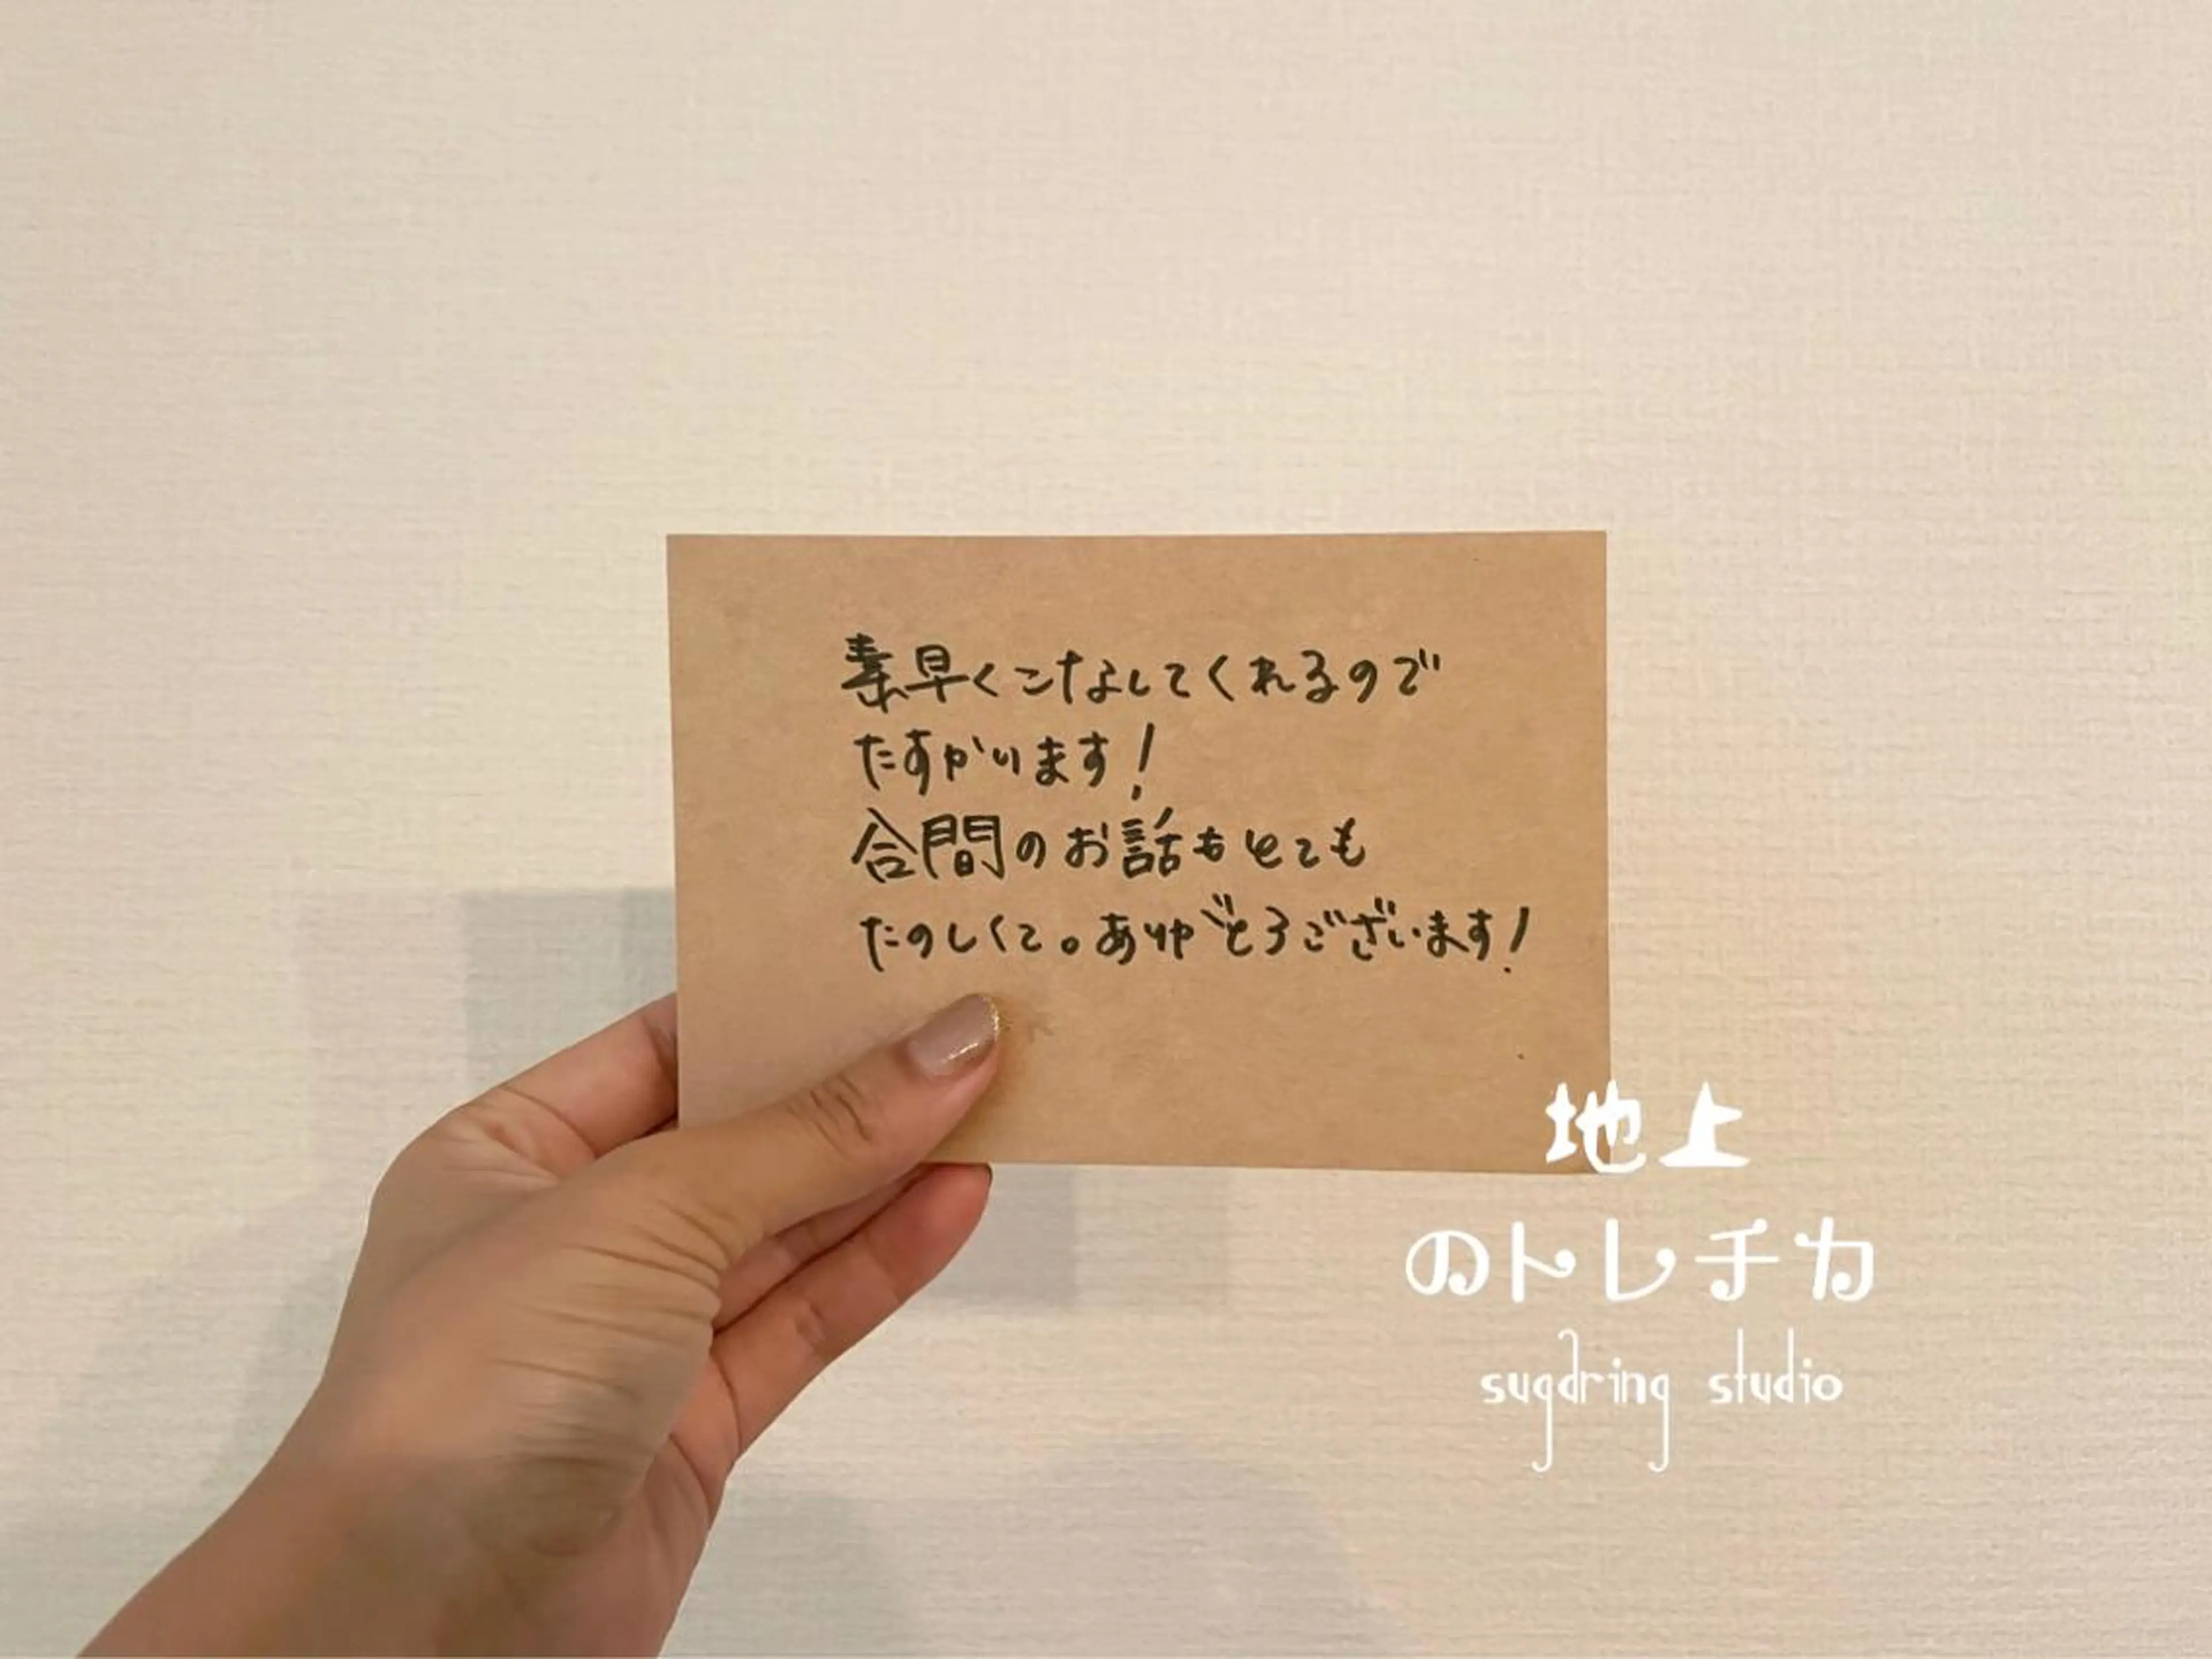 素早くこなしてくれるので
たすかります！
合間のお話もとても
たのしくて。ありがとうございます！
地上
のトレチカ
sugdring studio